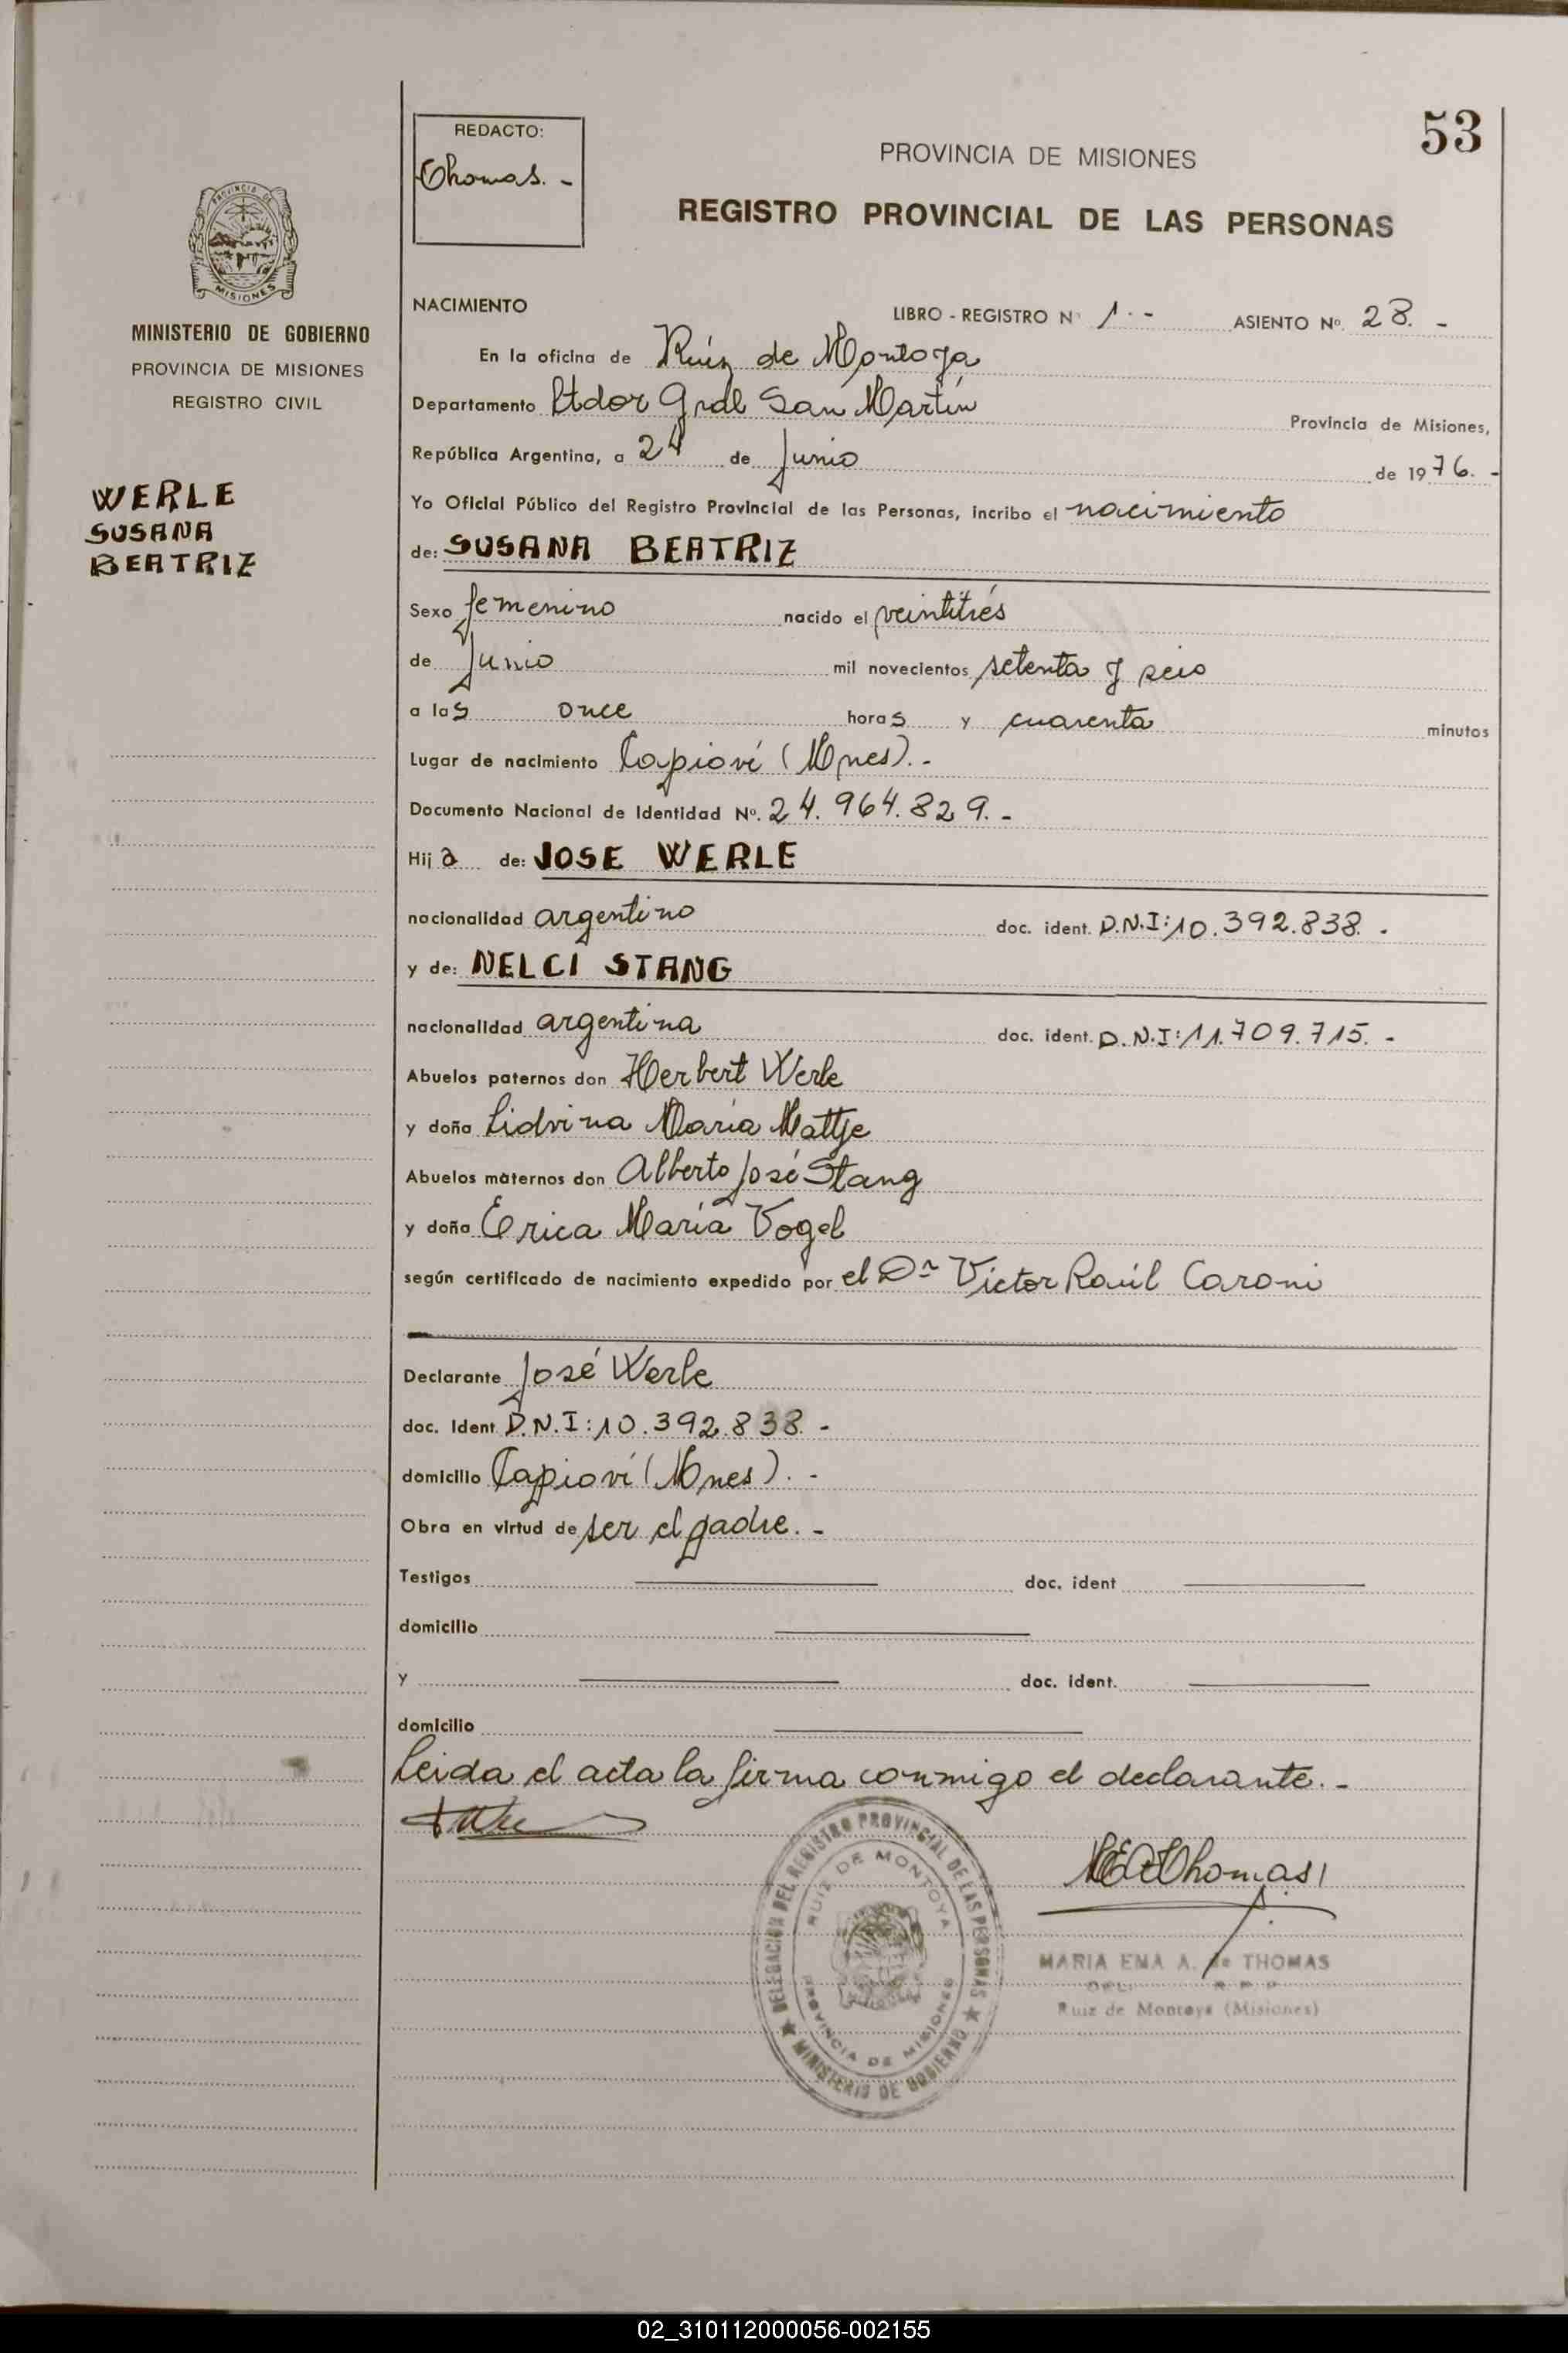 53
REDACTO:
Thomas. -
PROVINCIA DE MISIONES
REGISTRO PROVINCIAL DE LAS PERSONAS
PROVINCIA DE
MISIONES
MINISTERIO DE GOBIERNO
PROVINCIA DE MISIONES
REGISTRO CIVIL
WERLE
SUSANA
BEATRIZ
NACIMIENTO LIBRO - REGISTRO Nº 1. - ASIENTO Nº. 28. -
En la oficina de Ruíz de Montoya
Departamento Ltdor Gral San Martín Provincia de Misiones,
República Argentina, a 24 de Junio de 1976. -
Yo Oficial Público del Registro Provincial de las Personas, incribo el nacimiento
de: SUSANA BEATRIZ
Sexo femenino nacido el veintitrés
de Junio mil novecientos setenta y seis
a las once horas y cuarenta minutos
Lugar de nacimiento Capioví (Mnes). -
Documento Nacional de Identidad Nº. 24.964.829. -
Hija de: JOSE WERLE
nacionalidad argentino doc. ident. D.N.I: 10.392.838. -
y de: NELCI STANG
nacionalidad argentina doc. ident. D.N.I: 11.709.715. -
Abuelos paternos don Herbert Werle
y doña Lidvina María Mattje
Abuelos maternos don Alberto José Stang
y doña Erica María Vogel
según certificado de nacimiento expedido por el Dr Víctor Raúl Caroni
Declarante José Werle
doc. Ident D.N.I: 10.392.838. -
domicilio Capioví (Mnes). -
Obra en virtud de ser el padre. -
Testigos doc. ident
domicilio
y doc. ident.
domicilio
Leida el acta la firma conmigo el declarante. -
DELEGACION DEL REGISTRO PROVINCIAL DE LAS PERSONAS
RUIZ DE MONTOYA
PROVINCIA DE MISIONES
MINISTERIO DE GOBIERNO
Thomas
MARIA EMA A. de THOMAS
Ruiz de Montoya (Misiones)
02_310112000056-002155